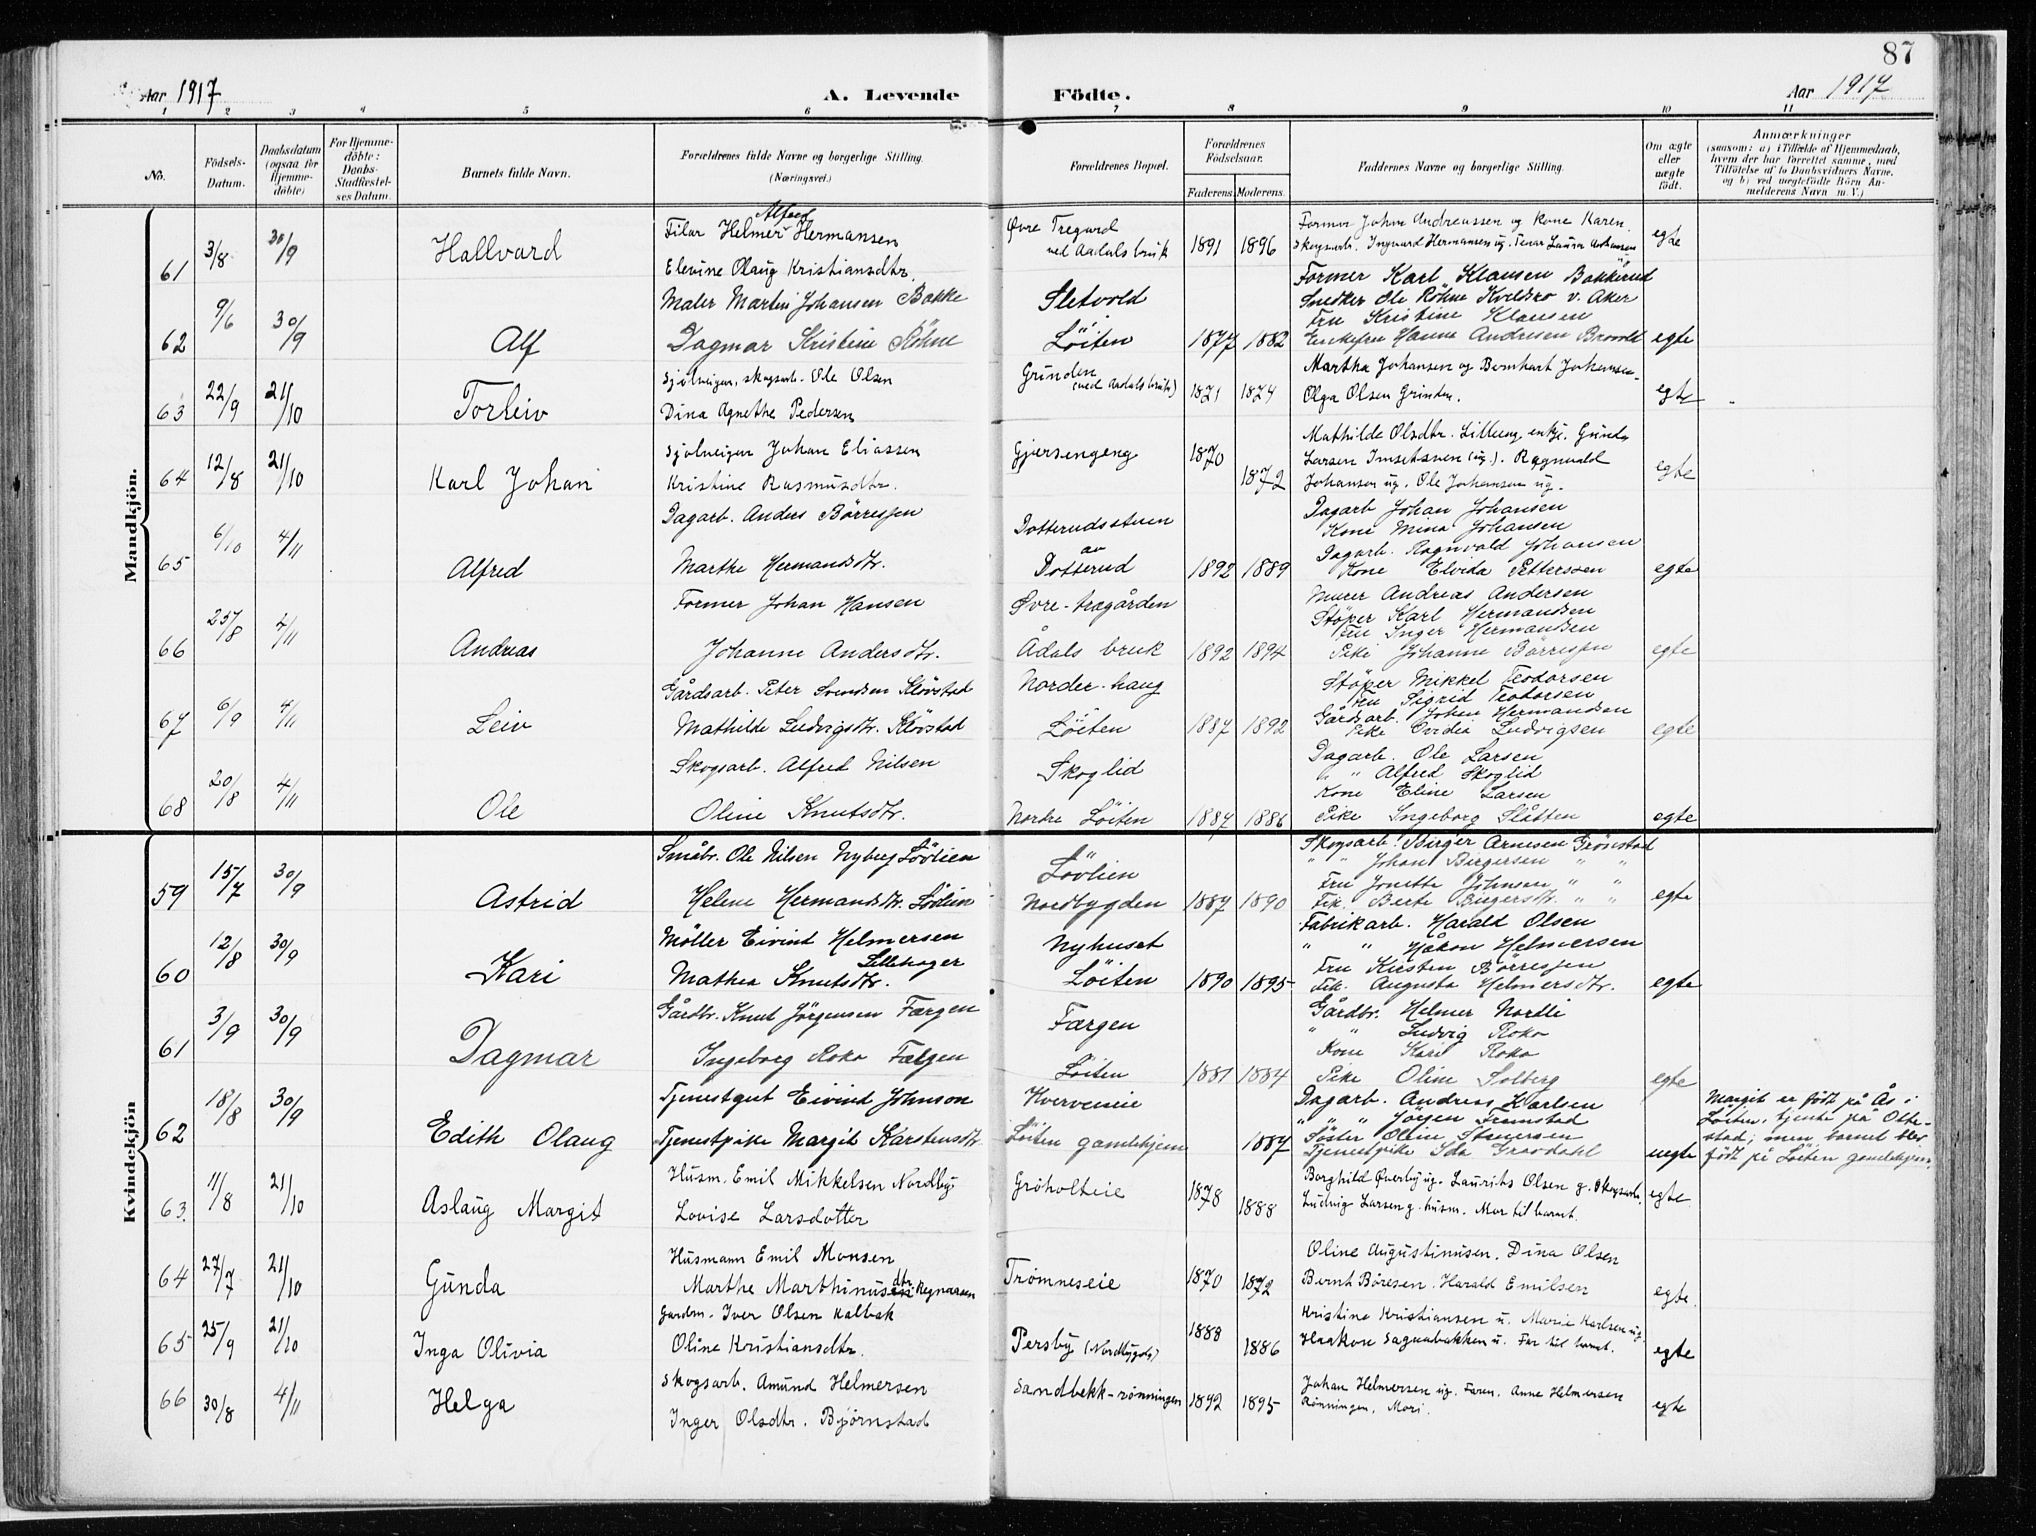 87
Aar 1917
A. Levende Födte.
Aar 1917
1 2 3 4 5 6 7 8 9 10 11
No.
Födsels-Datum.
Daabsdatum (ogsaa for Hjemme-döbte)
For Hjemme-döbte: Daabs-Stadfæstel-ses Datum.
Barnets fulde Navn.
Forældrenes fulde Navne og borgerlige Stilling. (Næringsvei.)
Forældrenes Bopæl.
Forældrenes Födselsaar.
Faderens. Moderens.
Faddernes Navne og borgerlige Stilling.
Om ægte eller uægte födt.
Anmærkninger (saasom: a) i Tilfælde af Hjemmedaab, hvem der har forrettet samme, med Tilföielse af to Daabsvidners Navne, og b) ved uægtefödte Börn An-melderens Navn m. V.)
Mandkjön.
61 3/8 30/9 Hallvard
Filar Helmer Alfred Hermansen
Elevine Olaug Kristiansdtr.
Øvre Tregard
ved Aadals bruk 1891 1896
Former Johan Andreassen og kone Karen.
Skogsarb. Ingvard Hermansen ug. Tenar Laura Johansen
egte
62 9/6 30/9 Alf
Maler Martin Johansen Bakke
Dagmar Kristine Röhne
Sletvold
Löiten 1877 1882
Former Karl Klausen Bakkerud
Snedker Ole Röhne Kveldsro v. Aker
Fru Kristine Klausen
Enkefru Hanna Andresen Brovold egte
63 22/9 21/10 Torleiv
Sjølveigar, skogsarb. Ole Olsen
Dina Agnethe Pedersen
Grinden
(ved Aadals bruk) 1871 1874
Martha Johansen og Bernhart Johansen
Olga Olsen Grinden.
egte
64 12/8 21/10 Karl Johan
Sjølveigar Johan Eliassen
Kristine Rasmusdtr.
Gjørsengeng 1870 1872
Mathilde Olsdtr. Lilleeng, enkje. Gunda
Larsen Imsetsven (ug.). Ragnvald
Johansen ug. Ole Johansen ug.
egte
65 6/10 4/11 Alfred
Dagarb. Anders Börresen
Marthe Hermandsdtr.
Dotterudsstuen
av
Dotterud 1892 1889
Dagarb Johan Johansen
Kone Mina Johansen
Dagarb. Ragnvald Johansen
Kone Elvida Pettersen egte
66 25/8 4/11 Andreas
Former Johan Hansen
Johanne Andersdtr.
Øvre-trægården
Ådals bruk 1892 1894
Murer Andreas Andersen
Støper Karl Hermansen
Fru Inger Hermandsen
Pike Johanne Börresen egte
67 6/9 4/11 Leiv
Gårdsarb. Peter Svendsen Klövstad
Mathilde Ludvigsdtr. Klövstad
Norder-haug
Löiten 1887 1892
Støper Mikkel Teodorsen
Fru Sigrid Teodorsen
Gårdsarb. Johan Hermandsen
Pike Ovidia Ludvigsen egte
68 20/8 4/11 Ole
Skogsarb. Alfred Nilsen
Oline Knutsdtr.
Skoglid
Nordre Löiten 1887 1886
Dagarb. Ole Larsen
" " Alfred Skoglid
Kone Eline Larsen
Pike Ingeborg Slåtten egte
Kvindekjön
59 15/7 30/9 Astrid
Småbr. Ole Nilsen Nyberg Lövlien
Helene Hermandsdtr. Lövlien
Lövlien
Nordbygden 1887 1890
Skogsarb. Birger Arnesen Grönstad
" " Johan Birgersen " "
Fru Jonetta Johnsen " "
Pik. Berte Birgersdtr. " " egte
60 12/8 30/9 Kari
Møller Eivind Helmersen
Lillehager
Mathea Knutsdtr.
Nyhuset
Löiten 1890 1895
Fabrikarb. Harald Olsen
" " Håkon Helmersen
Fru Kirsten Börresen
Pik. Augusta Helmersdtr. egte
61 3/9 30/9 Dagmar
Gårdbr. Knut Jörgensen Færgen
Ingeborg Roko Færgen
Færgen
Löiten 1881 1884
Gårdbr. Helmer Nordli
" " Ludvig Roko
Kone Kari Roko
Pike Oline Solberg egte
62 18/8 30/9 Edith Olaug
Tjenestgut Eivind Johnson
Tjenestpike Margit Karstensdtr.
Kverveieie
Löiten gamlehjem 1887
Dagarb. Andreas Karlsen
" " Jörgen Tunstad
Söster Oline Stenersen
Tjenestpike Ida Graadahl uegte
Margit er födt på Ås i
Löiten, tjente på Otte-
stad; men barnet blev
født på Löiten gamlehjem.
63. 11/8 21/10 Aslaug Margit
Husm. Emil Mikkelsen Nordby
Lovise Larsdotter
Grøholteie 1878 1888
Borghild Øverby ug. Laurits Olsen g. skogsarb.
Ludvig Larsen g. husm. Mor til barnet.
egte
64 27/7 21/10 Gunda
Husmann Emil Monsen
Marthe Marthinusdtr. Regnarsen
Trømneseie 1870 1872
Oline Augustinusen. Dina Olsen
Bernt Børesen. Harald Emilsen
egte.
65 25/9 21/10 Inga Olivia
Gardm. Iver Olsen Kalbak
Oline Kristiansdtr.
Persby (Nordbygda) 1888 1886
Kristine Kristiansen u. Marie Karlsen ug.
Haakon Sagaabakken u. Far til barnet.
egte
66 30/8 4/11 Helga
Skogsarb. Amund Helmersen
Inger Olsdtr. Bjørnstad
Sandbekk-rønningen 1892 1895
Johan Helmersen ug. Faren. Anne Helmersen
Rønningen. Mori.
egte